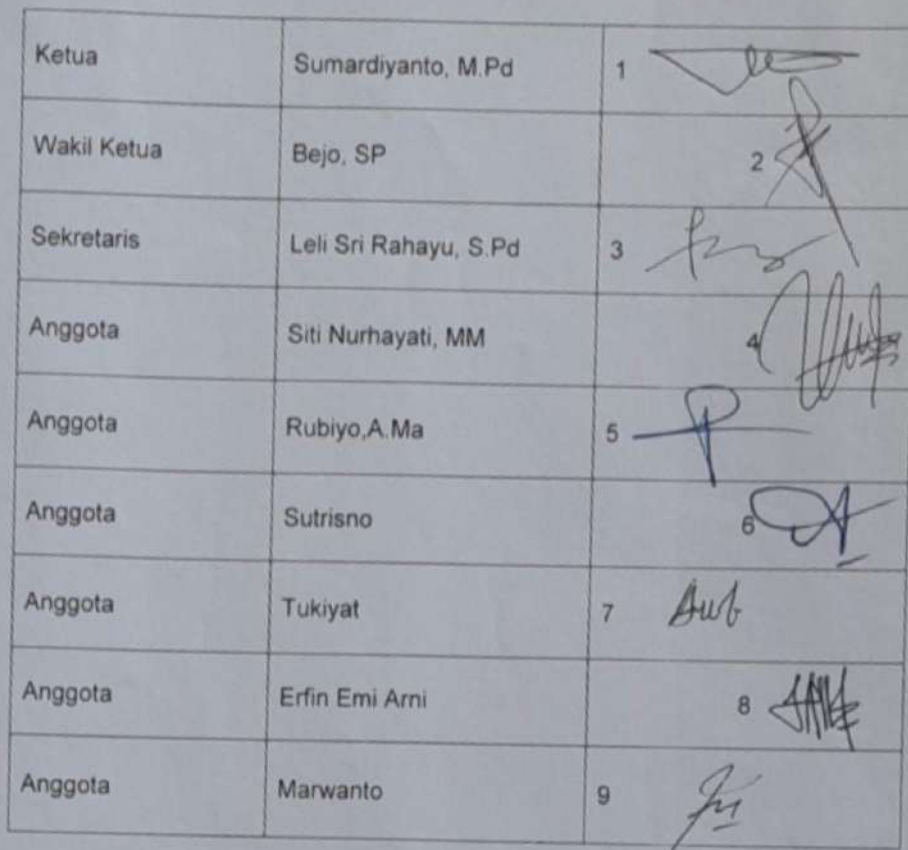 Ketua Sumardiyanto, M.Pd 1
Wakil Ketua Bejo, SP 2
Sekretaris Leli Sri Rahayu, S.Pd 3
Anggota Siti Nurhayati, MM 4
Anggota Rubiyo,A.Ma 5
Anggota Sutrisno 6
Anggota Tukiyat 7
Anggota Erfin Emi Arni 8
Anggota Marwanto 9